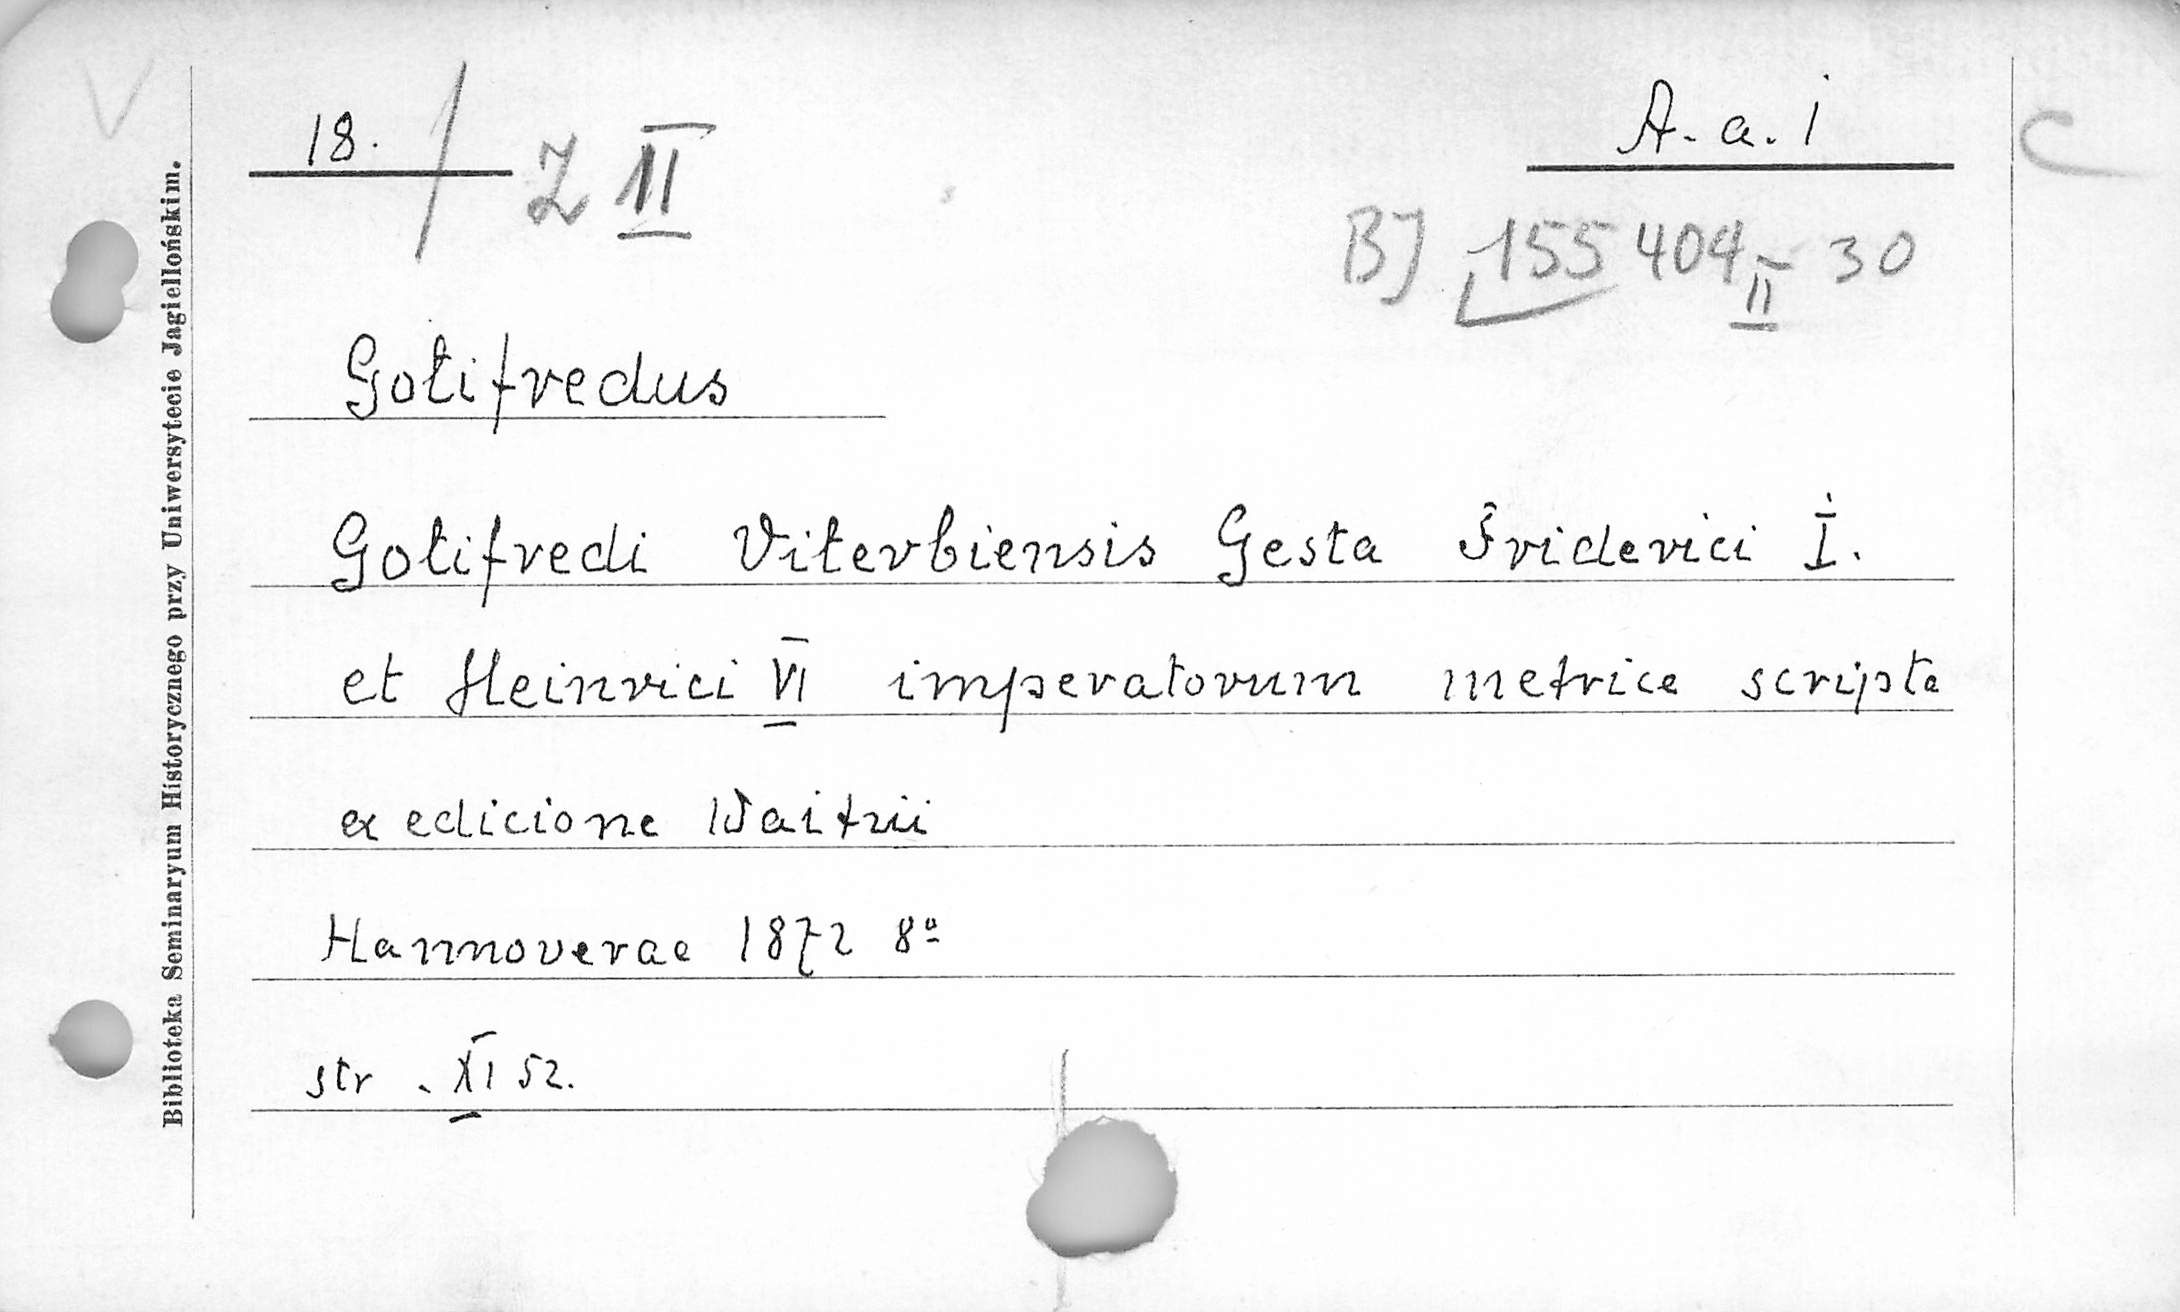 V
18. / Z II
A. a. i
C
BJ 155 404 II - 30
Biblioteka Seminaryum Historycznego przy Uniwersytecie Jagiellońskim.
Gotifredus
Gotifredi Viterbiensis Gesta Friderici I.
et Heinrici VI imperatorum metrice scripta
ex edicione Waitzii
Hannoverae 1872 8º
str. XI 52.